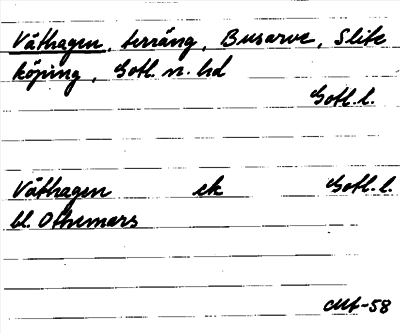 Våthagen, terräng, Busarve, Slite
köping, Gotl. n. hd
Gotl. l.
Våthagen ek Gotl. l.
bl. Othemars
-58